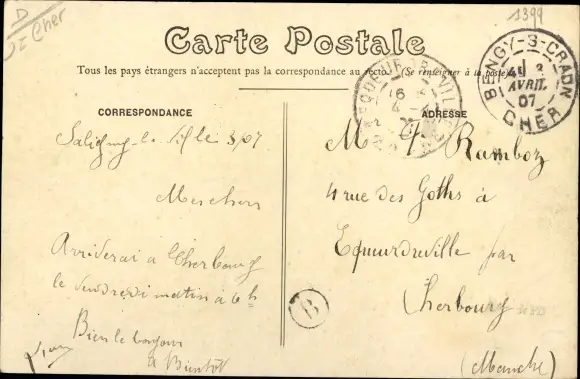 D
Cher
1399
Carte Postale
Tous les pays étrangers n'acceptent pas la correspondance au recto. (Se renseigner à la poste)
BENGY-S-CRAON
4 3
AVRIL
07
CHER
16
4
CORRESPONDANCE
ADRESSE
Saligny le 3/07
Mes chers
Arriverai à Cherbourg
le vendredi matin à 6 h
Bien le bonjour
à Bientôt
M Ramboz
4 rue des Goths à
Equeurdreville par
Cherbourg
(Manche)
B